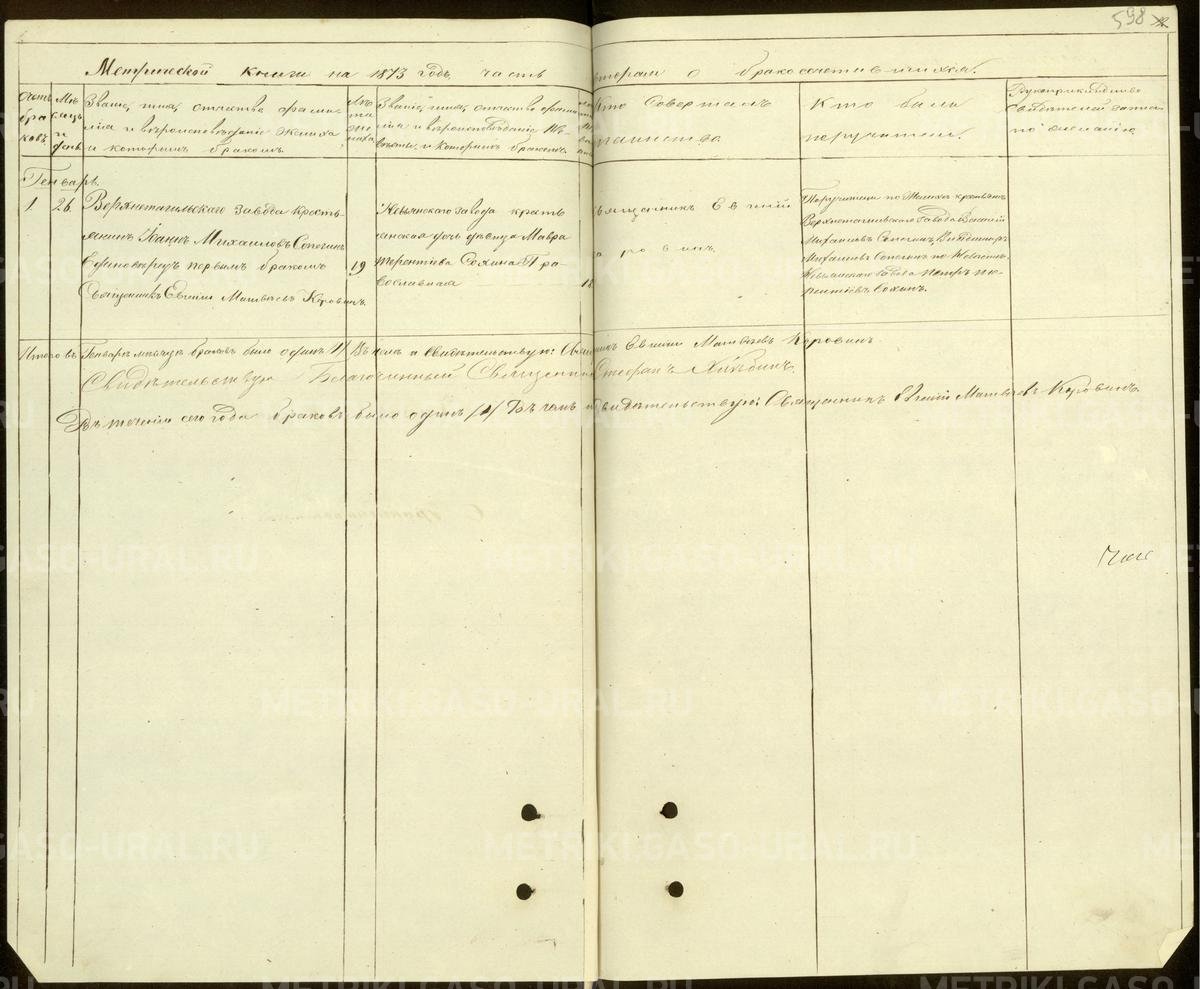 598
Метрической книги на 1873 годъ, часть вторая о бракосочетавшихся.
Счетъ браковъ
Мѣсяцъ и день
Званіе, имя, отчество, фами-
лія и вѣроисповѣданіе жениха
и которымъ бракомъ.
Лѣта жениха
Званіе, имя, отчество, фами-
лія и вѣроисповѣданіе не-
вѣсты, и которымъ бракомъ.
Кто совершалъ
таинство.
Кто были
поручители.
Рукоприкладство
свидѣтелей записи
по желанію
Генварь.
1
26.
Верхнетагильскаго завода кресть-
янинъ Іоаннъ Михаиловъ Сопегинъ
Единовѣрецъ первымъ бракомъ
Священникъ Евгеній Матвѣевъ Коровинъ.
19
Невьянскаго завода кресть
янская дочь дѣвица Мавра
Терентіева Сохина Пра-
вославная
18
священникъ Евгеній
Коровинъ
Поручители по женихѣ крестьяне
Верхнетагильскаго завода Василій
Михаиловъ Сопегинъ,
Михаиловъ Сопегинъ по невѣстѣ
Невьянскаго завода Петръ Те-
рентіевъ Сохинъ.
Итого въ Генварѣ мѣсяцѣ браковъ было одинъ /1/ Въ чемъ и свидѣтельствую: Священникъ Евгеній Матвѣевъ Коровинъ.
Свидѣтельствую Благочинный Священникъ Стефанъ Хлѣбинъ.
Въ теченіи сего года браковъ было одинъ /1/ Въ чемъ и свидѣтельствую: Священникъ Евгеній Матвѣевъ Коровинъ.
METRIKI.GASO-URAL.RU